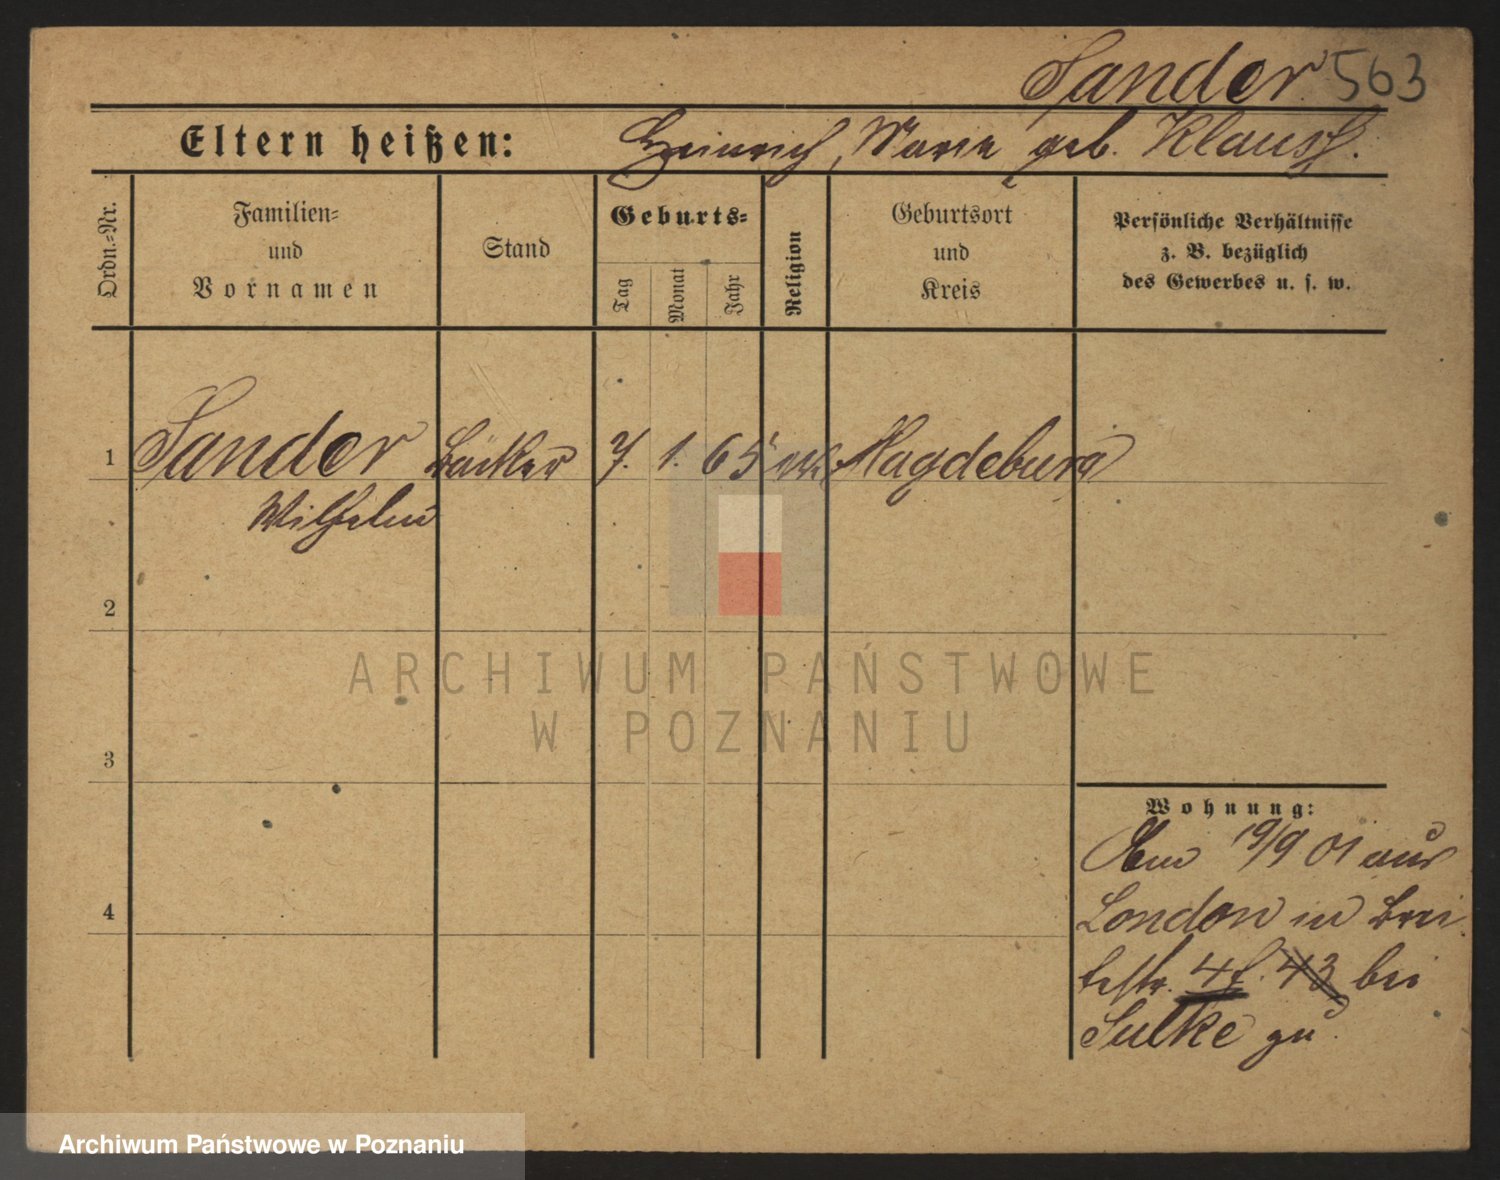 Sander 563
Eltern heißen: Heinrich, Marie geb. Klauss.
Ordn.=Nr.
Familien=
und
Vornamen
Stand
Geburts=
Tag
Monat
Jahr
Religion
Geburtsort
und
Kreis
Persönliche Verhältnisse
z. B. bezüglich
des Gewerbes u. s. w.
1 Sander Bäcker 7. 1. 65 Magdeburg
Wilhelm
2
ARCHIWUM PAŃSTWOWE
W POZNANIU
3
Wohnung:
19/9 01 aus
4
London in Brei
testr. 43 bei
Sulke zu
Archiwum Państwowe w Poznaniu